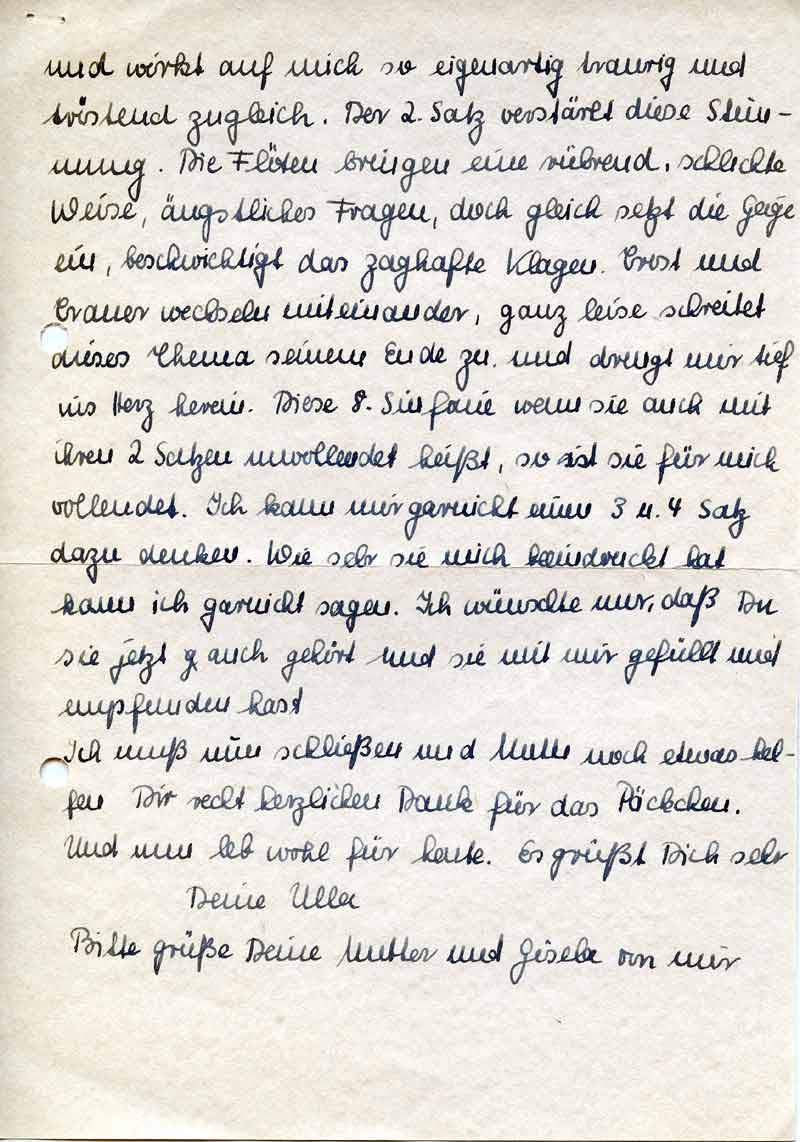 und wirkt auf mich so eigenartig traurig und
tröstend zugleich. Der 2. Satz verstärkt diese Stim-
mung. Die Flöten bringen eine rührend, schlichte
Weise, ängstliches Fragen, doch gleich setzt die Geige
ein, beschwichtigt das zaghafte Klagen. Trost und
Trauer wechseln miteinander, ganz leise schreitet
dieses Thema seinem Ende zu. und drengt mir tief
ins Herz herein. Diese 8. Sinfonie wenn sie auch mit
ihren 2 Sätzen unvollendet heißt, so ist sie für mich
vollendet. Ich kann mir garnicht einen 3 u. 4 Satz
dazu denken. Wie sehr sie mich beeindruckt hat
kann ich garnicht sagen. Ich wünschte nur, daß Du
sie jetzt auch gehört und sie mit mir gefühlt und
empfunden hast
Ich muß nun schließen und Mutti noch etwas hel-
fen Dir recht herzlichen Dank für das Päckchen.
Und nun leb wohl für heute. Es grüßt Dich sehr
Deine Ulla
Bitte grüße Deine Mutter und Gisela von mir